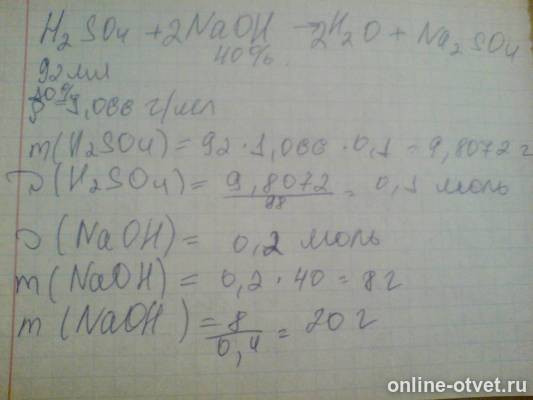 H₂SO₄ + 2NaOH → 2H₂O + Na₂SO₄
40%
92 мл
10%
ρ = 1,066 г/мл
m(H₂SO₄) = 92 · 1,066 · 0,1 = 9,8072 г
ν(H₂SO₄) = 9,8072/98 = 0,1 моль
ν(NaOH) = 0,2 моль
m(NaOH) = 0,2 · 40 = 8 г
m(NaOH) = 8/0,4 = 20 г
online-otvet.ru